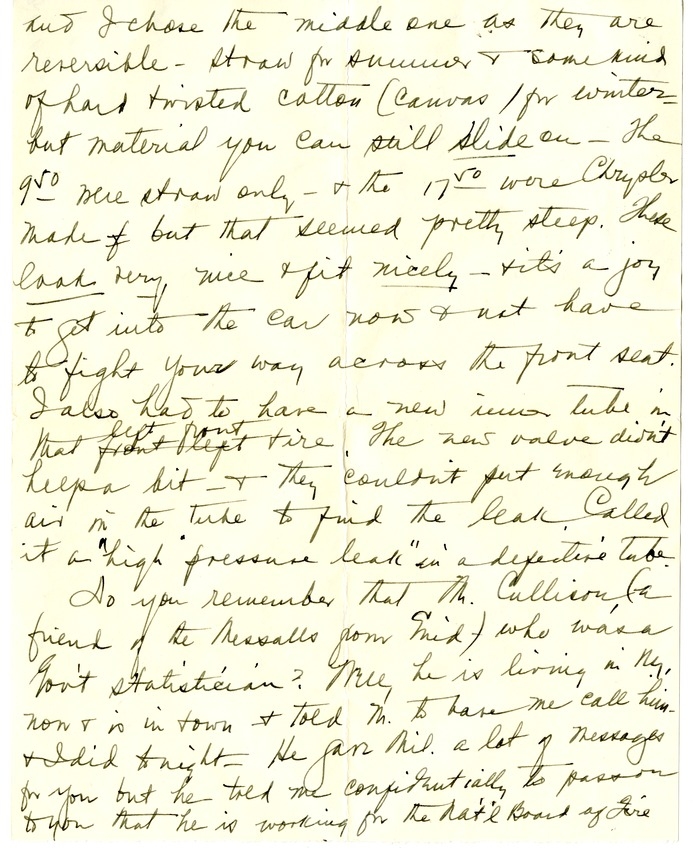 and I chose the middle one as they are
reversible - straw for summer & some kind
of hard twisted cotton (canvas) for winter -
but material you can still slide on - The
9.50 were straw only - & the 17.50 were Chrysler
made & but that seemed pretty steep. These
look very nice & fit nicely - & it's a joy
to get into the car now & not have
to fight your way across the front seat.
I also had to have a new inner tube in
left front
that front left tire The new valve didn't
help a bit - & they couldn't put enough
air in the tube to find the leak. Called
it a "high pressure leak" in a defective tube.
Do you remember that Mr. Cullison (a
friend of the from Enid) who was a
Gov't statistician? Well, he is living in N.Y.
now & is in town & told M. to have me call him -
& I did tonight - He gave a lot of messages
for you but he told me confidentially to pass on
to you that he is working for the Nat'l Board of Fire